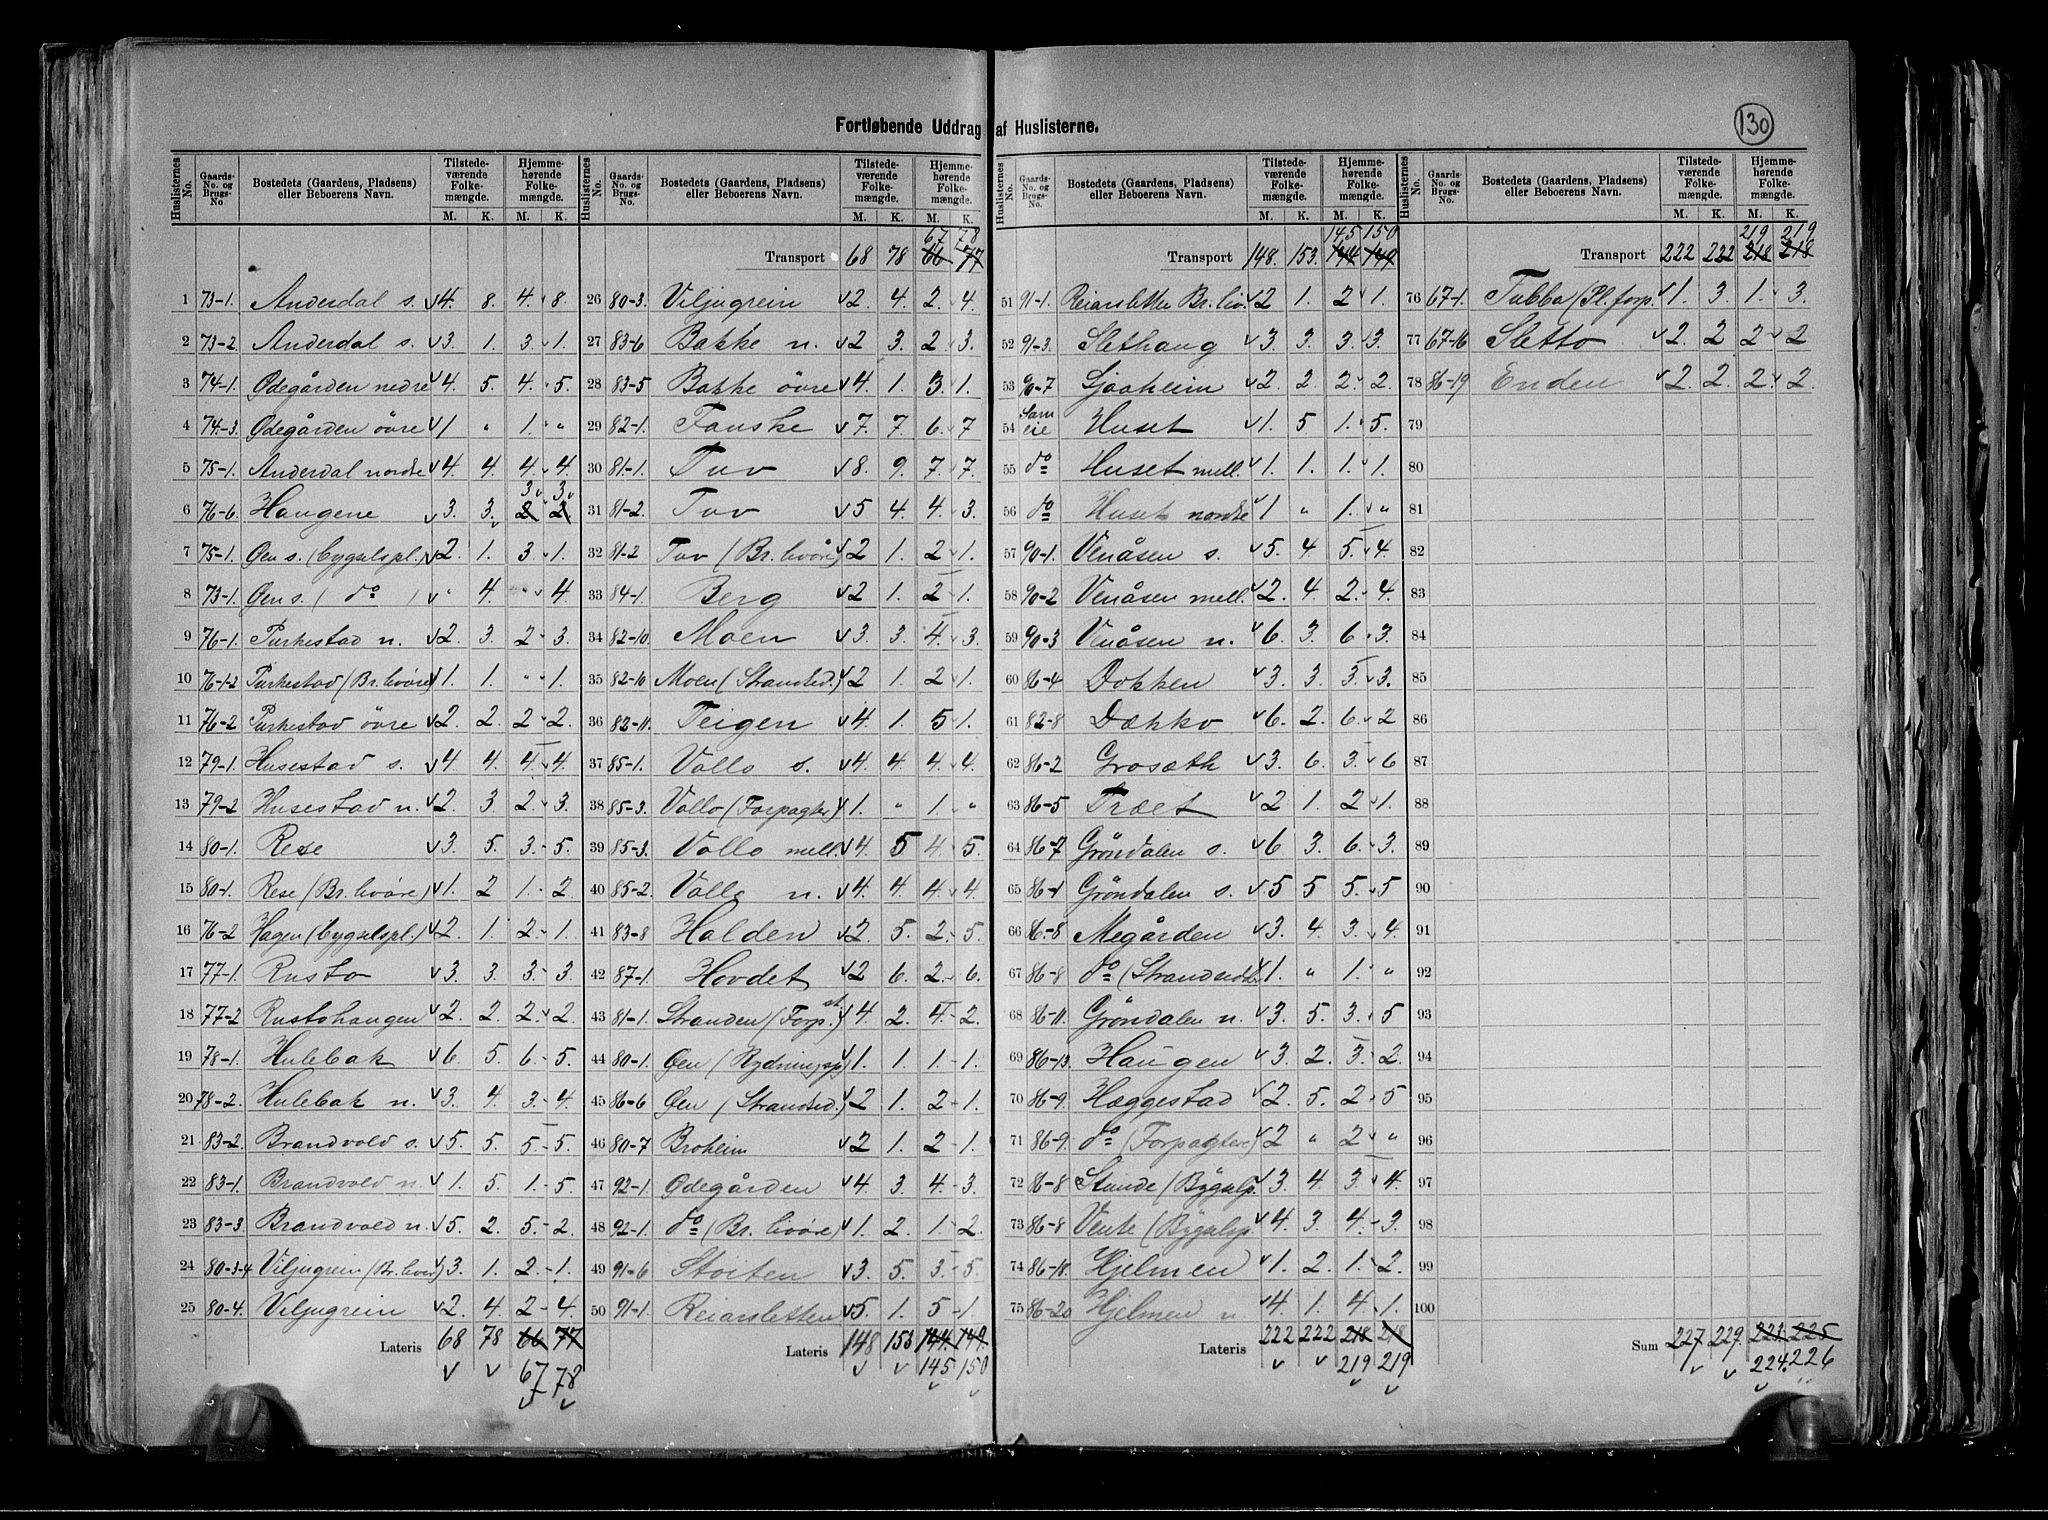 Fortløbende Uddrag af Huslisterne.
130
Huslisternes No. Gaards-No. og Brugs-No. Bostedets (Gaardens, Pladsens) eller Beboerens Navn. Tilstedeværende Folkemængde. M. K. Hjemmehørende Folkemængde. M. K.
1 73-1. Anderdal s. 4. 8. 4. 8.
2 73-2. Anderdal s. 3. 1. 3. 1.
3 74-1. Ødegården nedre 4. 5. 4. 5.
4 74-3. Ødegården övre 1 " 1. "
5 75-1. Anderdal nordre 4. 4. 4. 4.
3 3
6 76-6. Haugene 3. 3. 2 2
7 75-1. Øen s. (Bygselspl.) 2. 1. 3. 1.
8 73-1. Øen s. ( do ) " 4. " 4
9 76-1. Purkestad n. 2. 3. 2 3.
10 76-1-2 Purkestad (Br. livöre) 1. 1. " 1.
11 76-2 Purkestad övre 2. 2. 2 2.
12 79-1. Husestad s. 4. 4. 4. 4.
13 79-2 Husestad n. 2. 3 2. 3.
14 80-1. Rese 3. 5. 3. 5.
15 80-1. Rese (Br. livöre) 1. 2 1. 2
16 76-2 Hagen (Bygselspl.) 2. 1. 2. 1.
17 77-1. Rusto 3. 3. 3. 3.
18 77-2 Rustohaugen 2. 2. 2. 2.
19 78-1. Hulebak 6. 5. 6. 5.
20 78-2. Hulebak n. 3. 4. 3. 4.
21 83-2. Brandvold s. 5. 5. 5 5.
22 83-1. Brandvold n. 1. 5. 1. 5.
23 83-3. Brandvold n. 5. 2. 5. 2.
24 80-3-4 Viljugrein (Br. livör) 3. 1. 2. 1.
25 80-4. Viljugrein 2. 4. 2 4.
Lateris 68 78 66 77
67 78
Huslisternes No. Gaards-No. og Brugs-No. Bostedets (Gaardens, Pladsens) eller Beboerens Navn. Tilstedeværende Folkemængde. M. K. Hjemmehørende Folkemængde. M. K.
67 78
Transport 68 78 66 77
26 80-3. Viljugrein 2. 4. 2. 4.
27 83-6 Bakke n. 2 3. 2 3.
28 83-5 Bakke övre 4. 1. 3 1.
29 82-1. Fauske 7. 7. 6. 7
30 81-1. Tuv 8. 9. 7. 7.
31 81-2. Tuv 5 4. 4. 3.
32 81-2 Tuv (Br. livöre) 2 1. 2 1.
33 84-1. Berg 2 1. 2 1.
34 82-10. Moen 3. 3. 4. 3.
35 82-10 Moen (Strandsid.) 2 1. 2 1.
36 82-11. Teigen 4. 1. 5 1.
37 85-1. Vollo s. 4. 4. 4. 4.
38 85-3. Vollo (Forpagter) 1. " 1 "
39 85-3. Vollo mell. 4. 5 4. 5.
40 85-2. Vollo n. 4. 4. 4 4.
41 83-8 Halden 2. 5. 2. 5.
42 87-1. Hovdet 2 6. 2 6.
43 81-1. Stranden (Forp. st.) 4 2. 4. 2.
44 80-1. Øen (Rydningspl) 1. 1. 1. 1.
45 86-6 Øen (Strandsid.) 2 1. 2 1.
46 80-7 Broheim 2 1. 2 1.
47 92-1. Ødegården 4. 3. 4. 3.
48 92-1. do (Br. livöre) 1. 2. 1. 2.
49 91-6 Stoiten 3. 5. 3. 5.
50 91-1. Reiarsletten 5. 1. 5 1.
Lateris 148 153 144. 149.
145 150
Huslisternes No. Gaards-No. og Brugs-No. Bostedets (Gaardens, Pladsens) eller Beboerens Navn. Tilstedeværende Folkemængde. M. K. Hjemmehørende Folkemængde. M. K.
145 150
Transport 148. 153. 144 149
51 91-1. Reiarsletten Br. liv. 2 1. 2 1.
52 91-3. Slethaug 3. 3. 3. 3.
53 90-7 Sjaaheim 2. 2. 2. 2.
54 Sameie Huset 1. 5 1. 5.
55 do Huset mell. 1. 1. 1. 1.
56 do Huset nordre 1 " 1. "
57 90-1. Venåsen s. 5. 4 5. 4.
58 90-2 Venåsen mell. 2. 4. 2. 4.
59 90-3 Venåsen n. 6. 3. 6 3.
60 86-4 Dokken 3. 3. 3. 3.
61 82-8 Dækko 6. 2. 6. 2
62 86-2 Grosæth 3. 6. 3. 6
63 86-5 Træet 2 1. 2 1.
64 86-7 Gröndalen s. 6 3. 6. 3.
65 86-1 Gröndalen s. 5. 5 5. 5
66 86-8 Megården 3. 4. 3. 4.
67 86-8 do (Strandsidder) 1. " 1. "
68 86-11. Gröndalen n. 3. 5. 3. 5
69 86-13. Haugen 3. 2. 3. 2.
70 86-9. Haggestad 2. 5. 2 5
71 86-9. do (Forpagtere) 2 " 2 "
72 86-8 Stunde (Bÿgselp. 3. 4 3. 4.
73 86-8 Vente (Bÿgselsp. 4. 3. 4. 3.
74 86-18. Hjelmen 1. 2. 1. 2.
75 86-20 Hjelmen n. 4. 1. 4 1.
Lateris 222 222 218 218
219 219
Huslisternes No. Gaards-No. og Brugs-No. Bostedets (Gaardens, Pladsens) eller Beboerens Navn. Tilstedeværende Folkemængde. M. K. Hjemmehørende Folkemængde. M. K.
219 219
Transport 222 222 218 218
76 67-1. Tubba (Pl. forp. 1. 3. 1. 3.
77 67-16 Sletto 2. 2 2 2
78 86-19 Enden 2. 2. 2 2.
79
80
81
82
83
84
85
86
87
88
89
90
91
92
93
94
95
96
97
98
99
100
Sum 227 229. 223. 225
224. 226